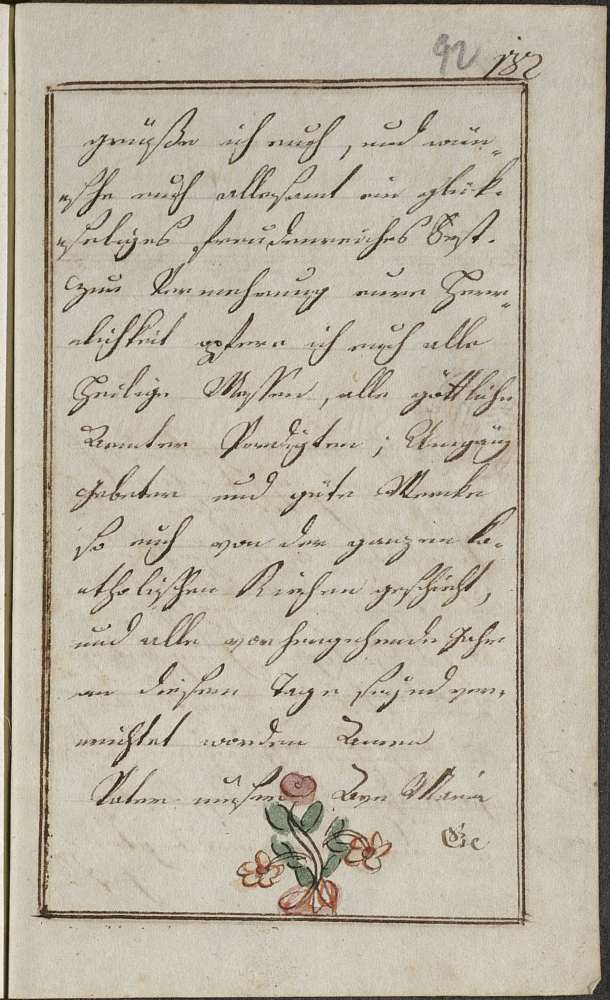 92 182
grüße ich euch, und wün-
sche euch allesamt ein glük-
seliges freudenreiches Fest.
zur Vermehrung eure Herr-
lichkeit opfere ich euch alle
Heilige Messen, alle göttliche
Aemter Predigten; Umgäng
Gebeter und gute Wercke
so euch von der ganzen ka-
tholischen Kirchen geschicht,
und alle vorhergehende Jahr
an diesem Tage seynd ver-
richtet worden Amen
Vater unser Ave Maria